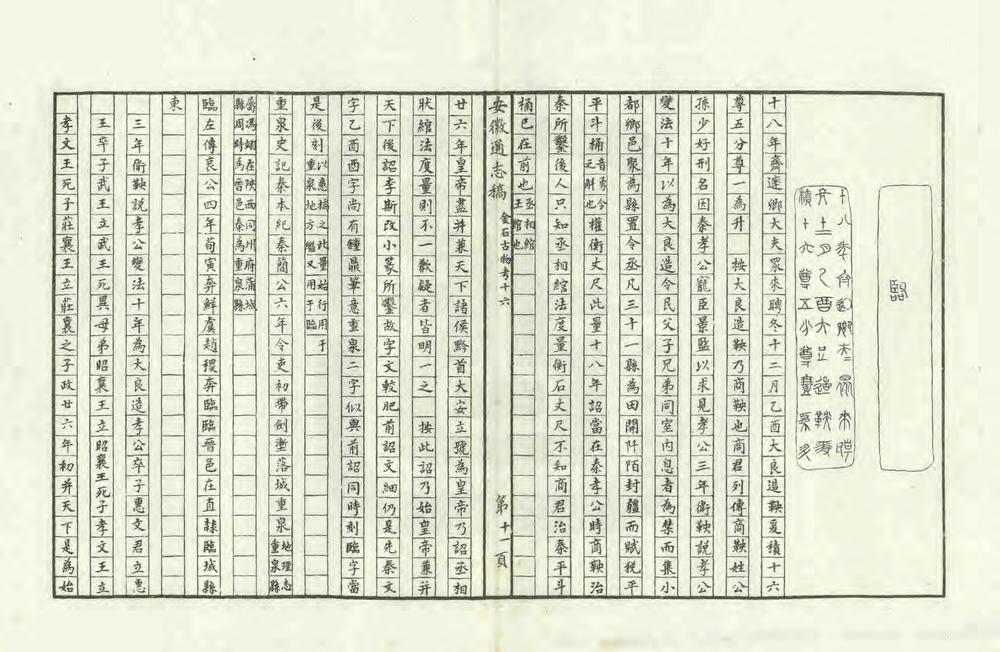 臨
十八年齊遣卿大夫眾來聘
冬十二月乙酉大良造鞅爰
積十六尊五分尊壹為升
十八年齊遣卿大夫眾來聘冬十二月乙酉大良造鞅爰積十六
尊五分尊一為升　按大良造鞅乃商鞅也商君列傳商鞅姓公
孫少好刑名因秦孝公寵臣景監以求見孝公三年衛鞅說孝公
變法十年以為大良造令民父子兄弟同室內息者為禁而集小
都鄉邑聚為縣置令丞凡三十一縣為田開阡陌封疆而賦稅平
平斗桶音勇今之斛也權衡丈尺此量十八年詔當在秦孝公時商鞅治
秦所鑿後人只知丞相綰法度量衡石丈尺不知商君治秦平斗
桶已在前也丞相綰王綰也
安徽通志稿　金石古物考十六　第十一頁
廿六年皇帝盡并兼天下諸侯黔首大安立號為皇帝乃詔丞相
狀綰法度量則不一歉疑者皆明一之　按此詔乃始皇帝兼并
天下後詔李斯改小篆所鑿故字文較肥前詔文細仍是先秦文
字乙酉酉字尚有鐘鼎筆意重泉二字似與前詔同時刻臨字當
是後刻以意揣之此量始行用于重泉地方繼又用于臨
重泉史記秦本紀秦簡公六年令吏初帶劍塹洛城重泉地理志重泉縣
屬馮翊在陝西同州府蒲城縣周時為晉邑秦為重泉縣
臨左傳哀公四年荀寅奔鮮虞趙稷奔臨臨晉邑在直隸臨城縣
東
三年衛鞅說孝公變法十年為大良造孝公卒子惠文君立惠
王卒子武王立武王死異母弟昭襄王立昭襄王死子孝文王立
孝文王死子莊襄王立莊襄之子政廿六年初并天下是為始